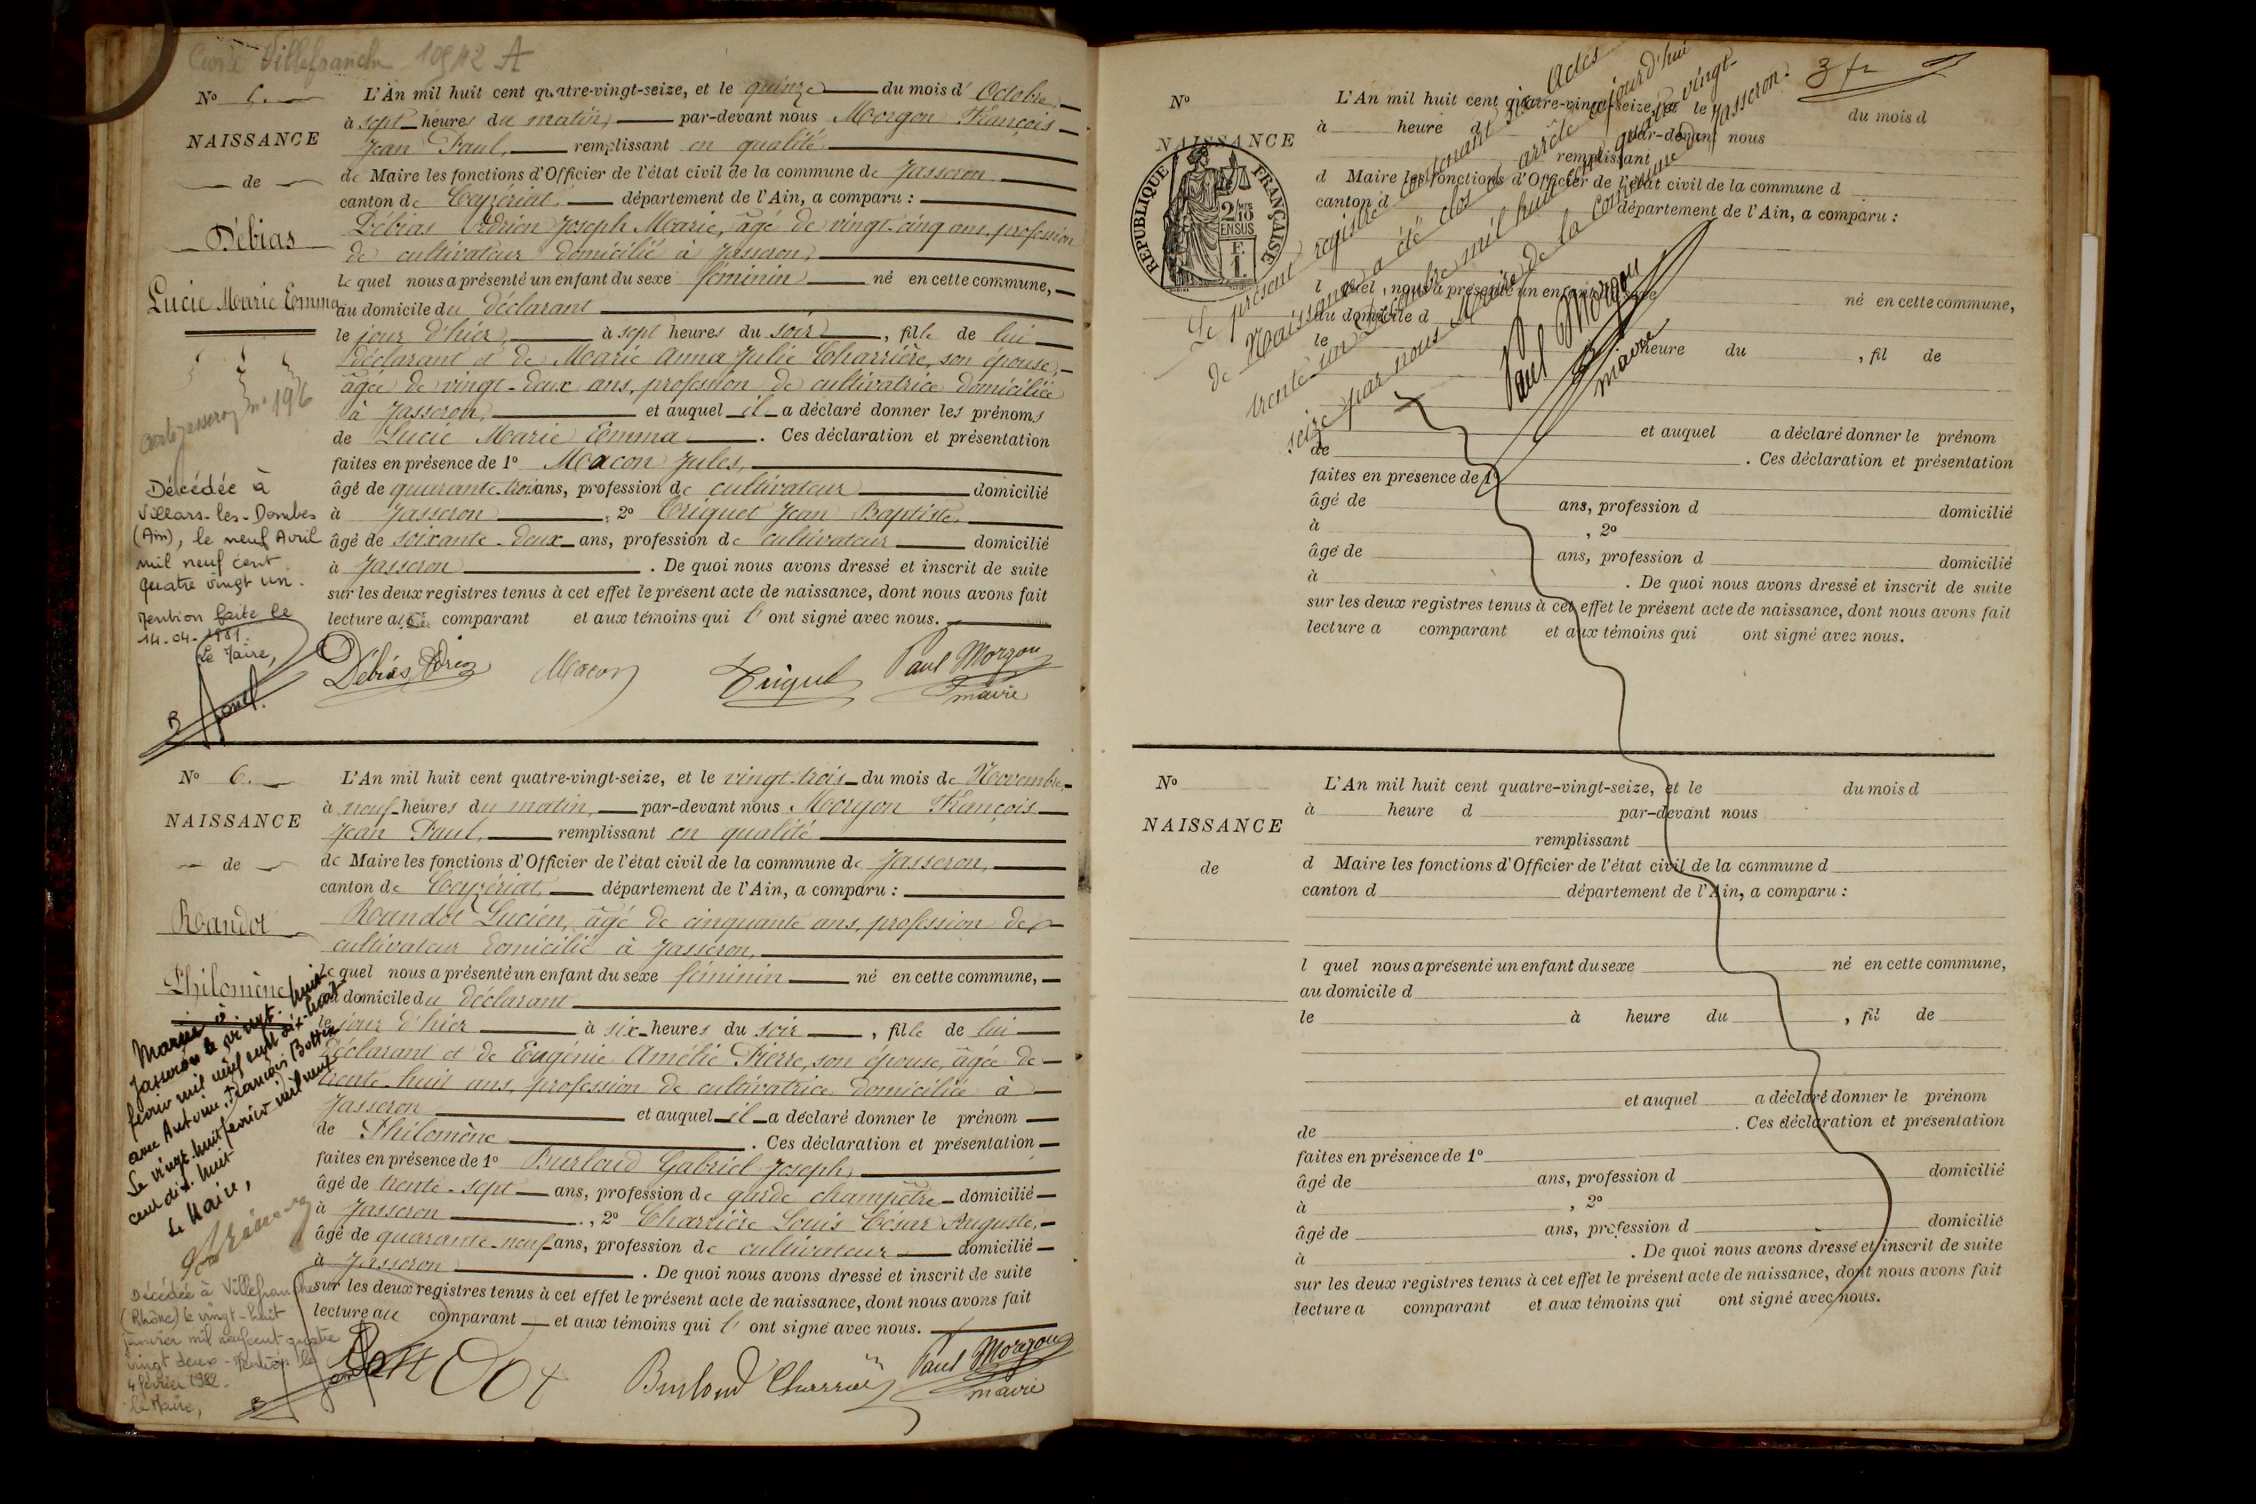 Civrie Villefranche 10942 A
N° 5.
NAISSANCE
de
Débias
Lucie Marie Emma
L'An mil huit cent quatre-vingt-seize, et le quinze du mois d'Octobre
à sept heures du matin, par-devant nous Morgon François
Jean Paul, remplissant en qualité
de Maire les fonctions d'Officier de l'état civil de la commune de Jasseron
canton de Ceyzériat, département de l'Ain, a comparu :
Débias Adrien Joseph Marie, âgé de vingt-cinq ans, profession
de cultivateur domicilié à Jasseron,
lequel nous a présenté un enfant du sexe féminin né en cette commune,
au domicile du déclarant
le jour d'hier, à sept heures du soir, fille de lui
déclarant et de Marie Anna Julie Charrière, son épouse,
âgée de vingt-deux ans, profession de cultivatrice domiciliée
à Jasseron, et auquel il a déclaré donner les prénoms
de Lucie Marie Emma. Ces déclaration et présentation
faites en présence de 1° Macon Jules,
âgé de quarante-trois ans, profession de cultivateur domicilié
à Jasseron, 2° Triquet Jean Baptiste,
âgé de soixante-deux ans, profession de cultivateur domicilié
à Jasseron. De quoi nous avons dressé et inscrit de suite
sur les deux registres tenus à cet effet le présent acte de naissance, dont nous avons fait
lecture au comparant et aux témoins qui l'ont signé avec nous.
Macon Triquet Paul Morgon
maire
n° 196
Décédée à
Villars-les-Dombes
(Ain), le neuf Avril
mil neuf cent
quatre vingt un.
Mention faite le
14-04-1981.
Le Maire,
N° 6.
NAISSANCE
de
Roandot
Philomène
L'An mil huit cent quatre-vingt-seize, et le vingt-trois du mois de Novembre,
à neuf heures du matin, par-devant nous Morgon François
Jean Paul, remplissant en qualité
de Maire les fonctions d'Officier de l'état civil de la commune de Jasseron,
canton de Ceyzériat, département de l'Ain, a comparu :
Roandot Lucien, âgé de cinquante ans, profession de
cultivateur domicilié à Jasseron,
lequel nous a présenté un enfant du sexe féminin né en cette commune,
au domicile du déclarant
le jour d'hier à six heures du soir, fille de lui
déclarant et de Eugénie Amélie Pierre, son épouse, âgée de
trente-huit ans, profession de cultivatrice domiciliée à
Jasseron et auquel il a déclaré donner le prénom
de Philomène. Ces déclaration et présentation
faites en présence de 1° Burloud Gabriel Joseph,
âgé de trente-sept ans, profession de garde champêtre domicilié
à Jasseron, 2° Charrière Louis César Auguste,
âgé de quarante-neuf ans, profession de cultivateur domicilié
à Jasseron. De quoi nous avons dressé et inscrit de suite
sur les deux registres tenus à cet effet le présent acte de naissance, dont nous avons fait
lecture au comparant et aux témoins qui l'ont signé avec nous.
Burloud Charrière Paul Morgon
maire
Mariée à
Jasseron le vingt-huit
février mil neuf cent dix-huit
avec Antoine François Bottex
Le vingt-huit février mil neuf
cent dix-huit
Le Maire,
Décédée à Villefranche
(Rhône) le vingt-huit
janvier mil neuf cent quatre
vingt deux - Mention le
4 février 1982.
Le Maire,
3 fr
N°
NAISSANCE
RÉPUBLIQUE FRANÇAISE
2/10 EN SUS
L'An mil huit cent quatre-vingt-seize, et le du mois d
à heure d par-devant nous
remplissant
d Maire les fonctions d'Officier de l'état civil de la commune d
canton d département de l'Ain, a comparu :
l quel nous a présenté un enfant du sexe né en cette commune,
au domicile d
le heure du , fil de
et auquel a déclaré donner le prénom
de . Ces déclaration et présentation
faites en présence de 1°
âgé de ans, profession d domicilié
à , 2°
âgé de ans, profession d domicilié
à . De quoi nous avons dressé et inscrit de suite
sur les deux registres tenus à cet effet le présent acte de naissance, dont nous avons fait
lecture a comparant et aux témoins qui ont signé avec nous.
Le présent registre contenant six Actes
de Naissance a été clos et arrêté aujourd'hui
trente-un Décembre mil huit cent quatre-vingt-
seize par nous Maire de la commune de Jasseron.
Paul Morgon
maire
N°
NAISSANCE
de
L'An mil huit cent quatre-vingt-seize, et le du mois d
à heure d par-devant nous
remplissant
d Maire les fonctions d'Officier de l'état civil de la commune d
canton d département de l'Ain, a comparu :
l quel nous a présenté un enfant du sexe né en cette commune,
au domicile d
le à heure du , fil de
et auquel a déclaré donner le prénom
de . Ces déclaration et présentation
faites en présence de 1°
âgé de ans, profession d domicilié
à , 2°
âgé de ans, profession d domicilié
à . De quoi nous avons dressé et inscrit de suite
sur les deux registres tenus à cet effet le présent acte de naissance, dont nous avons fait
lecture a comparant et aux témoins qui ont signé avec nous.